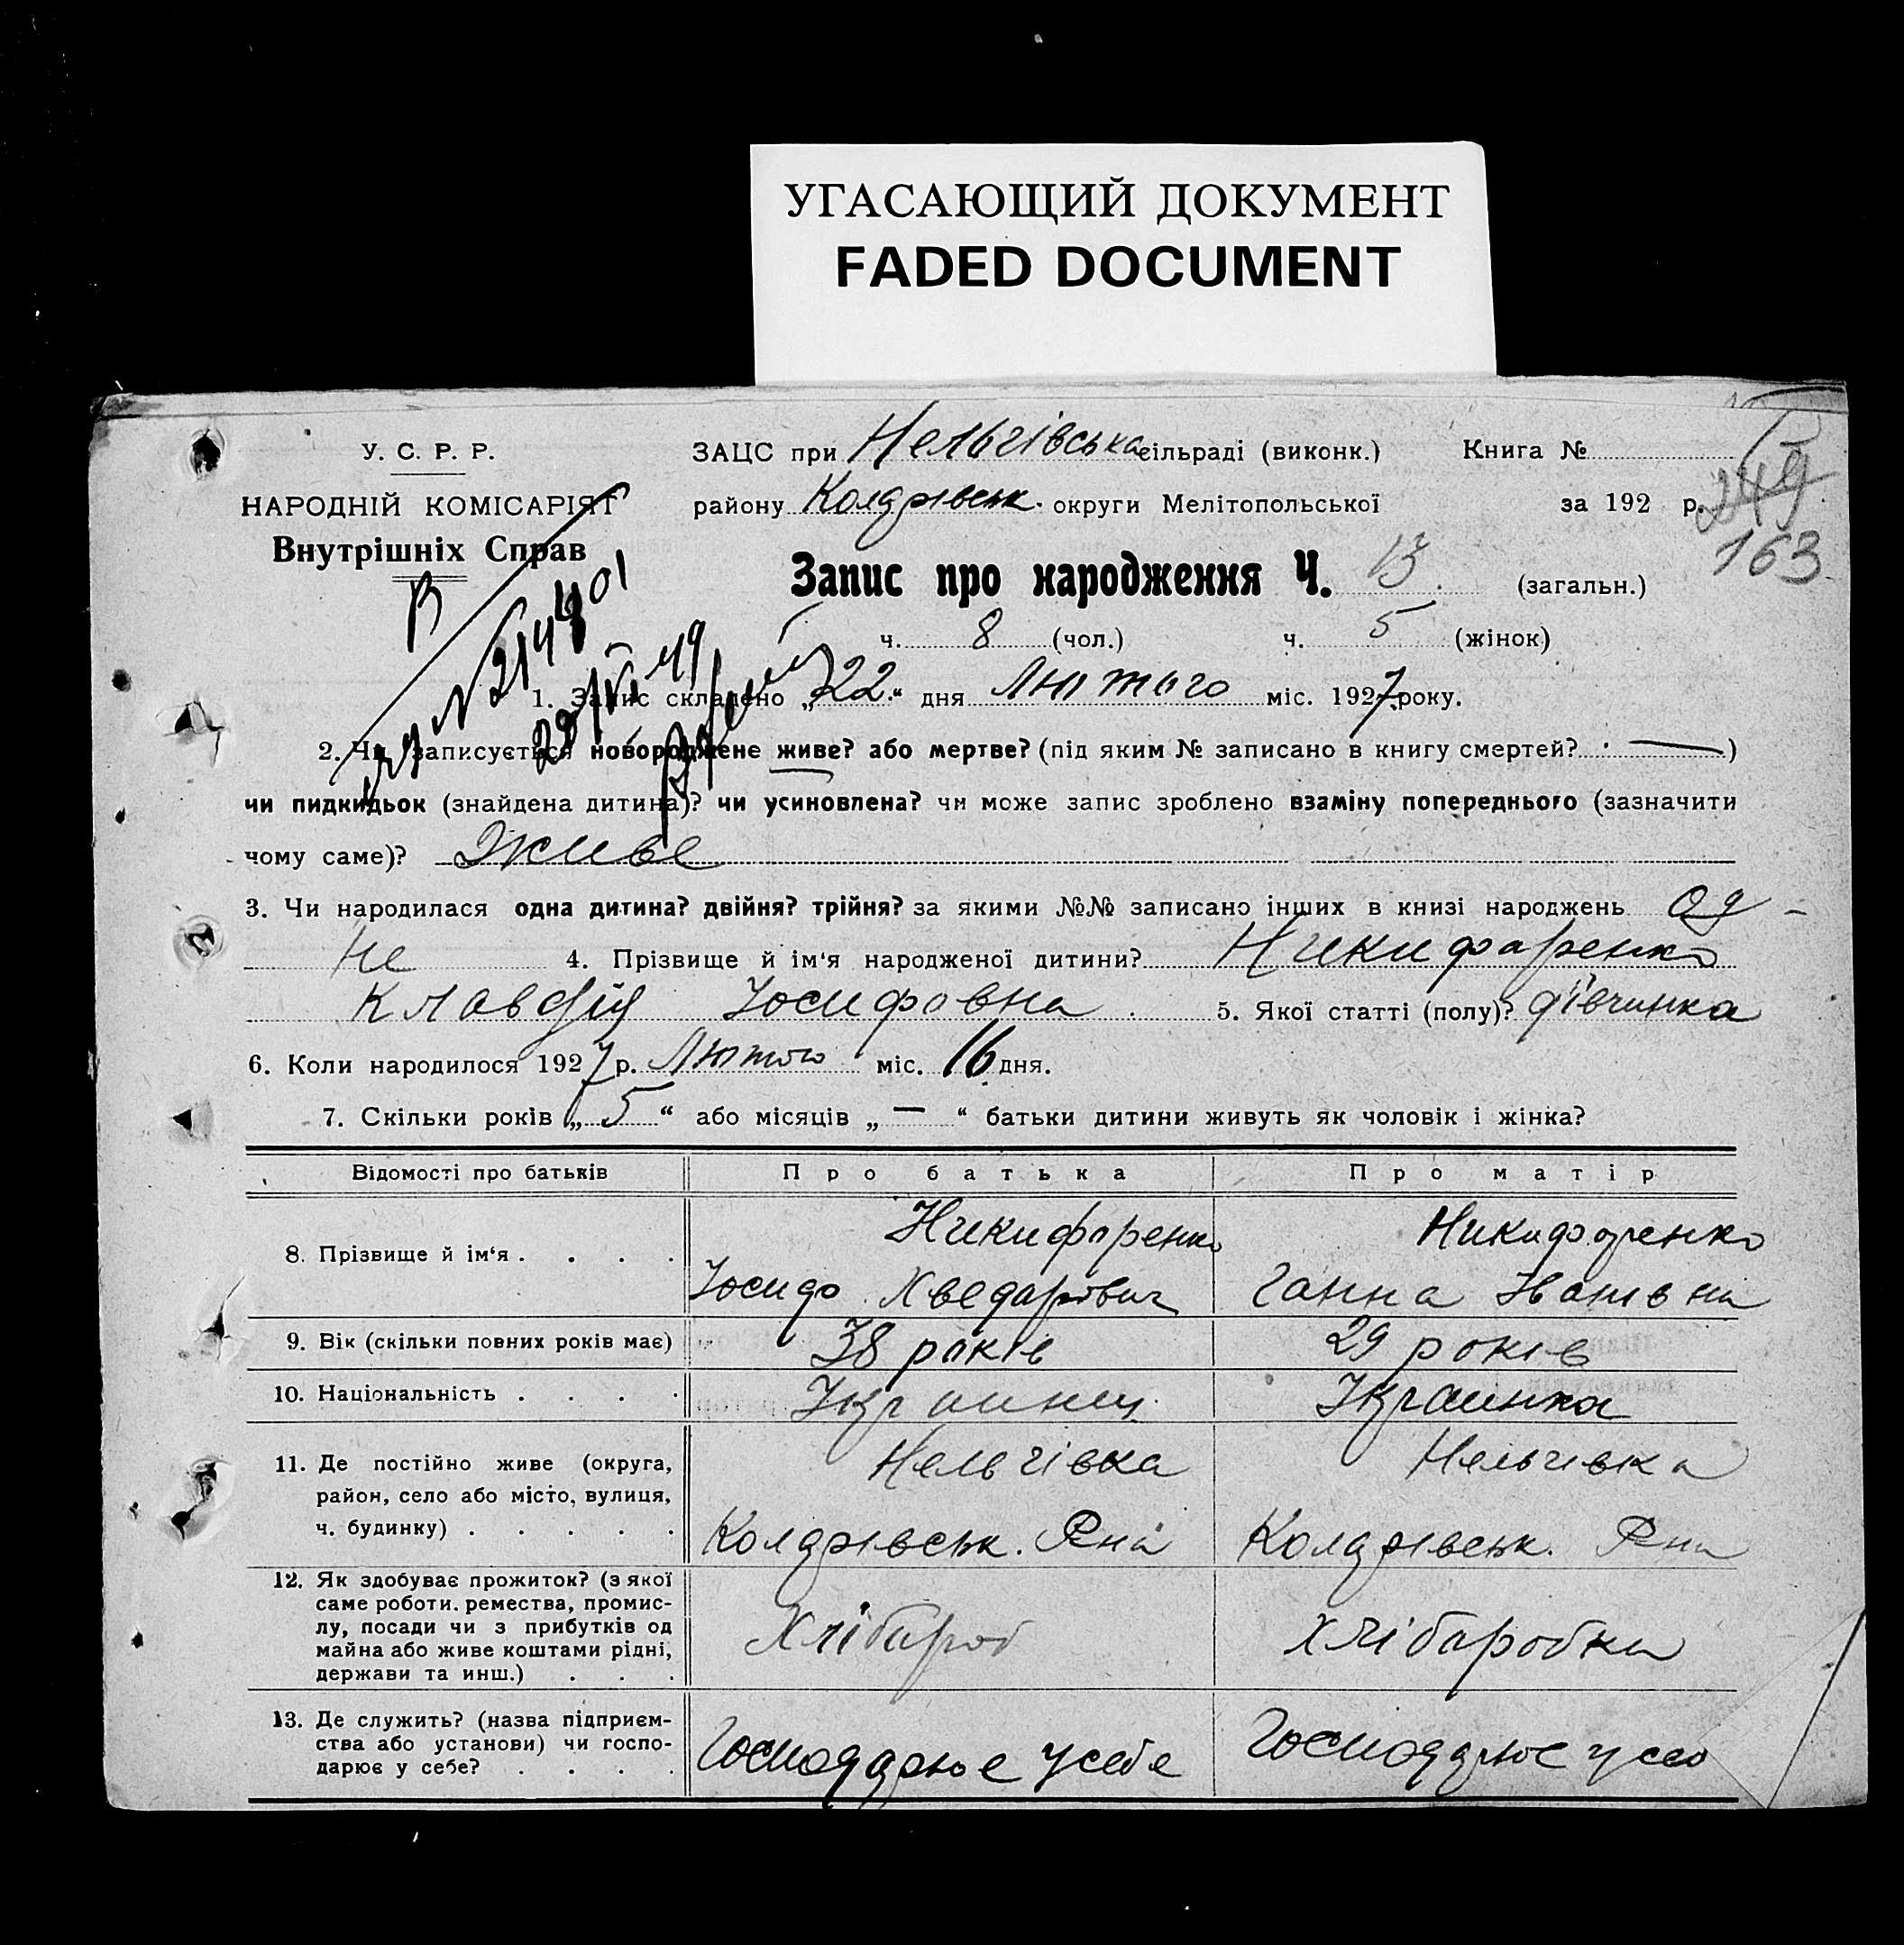 УГАСАЮЩИЙ ДОКУМЕНТ
FADED DOCUMENT
У. С. Р. Р.
НАРОДНІЙ КОМІСАРІЯТ
Внутрішніх Справ
ЗАЦС при Нельгівська сільраді (виконк.) Книга №
району Колдрівськ. округи Мелітопольської за 192 р.
249
163
Запис про народження Ч. 13. (загальн.)
ч. 8 (чол.) ч. 5 (жінок)
1. Запис складено „22“ дня Лютого міс. 1927 року.
2. Чи записується новороджене живе? або мертве? (під яким № записано в книгу смертей? —)
чи пидкидьок (знайдена дитина)? чи усиновлена? чи може запис зроблено взаміну попереднього (зазначити
чому саме)? Живе
3. Чи народилася одна дитина? двійня? трійня? за якими №№ записано інших в книзі народжень од-
не 4. Прізвище й ім‘я народженої дитини? Никифаренко
Клавдія Іосифовна 5. Якої статті (полу)? дівчинка
6. Коли народилося 1927 р. Лютого міс. 16 дня.
7. Скільки років „5“ або місяців „—“ батьки дитини живуть як чоловік і жінка?
Відомості про батьків Про батька Про матір
8. Прізвище й ім‘я . . . . Никифаренко Никифаренко
Іосифо Хведарович Ганна Іванівна
9. Вік (скільки повних років має) 38 років 29 років
10. Національність . . . . Украинец Украинка
11. Де постійно живе (округа, Нельгівка Нельгівка
район, село або місто, вулиця,
ч. будинку) . . . . . Колдрівськ. Рна Колдрівськ. Рна
12. Як здобуває прожиток? (з якої
саме роботи. ремества, промис-
лу, посади чи з прибутків од Хлібароб Хлібаробка
майна або живе коштами рідні,
держави та инш.) . . .
13. Де служить? (назва підприєм-
ства або установи) чи госпо- Господарює у себе Господарює у себе
дарює у себе? . . . .